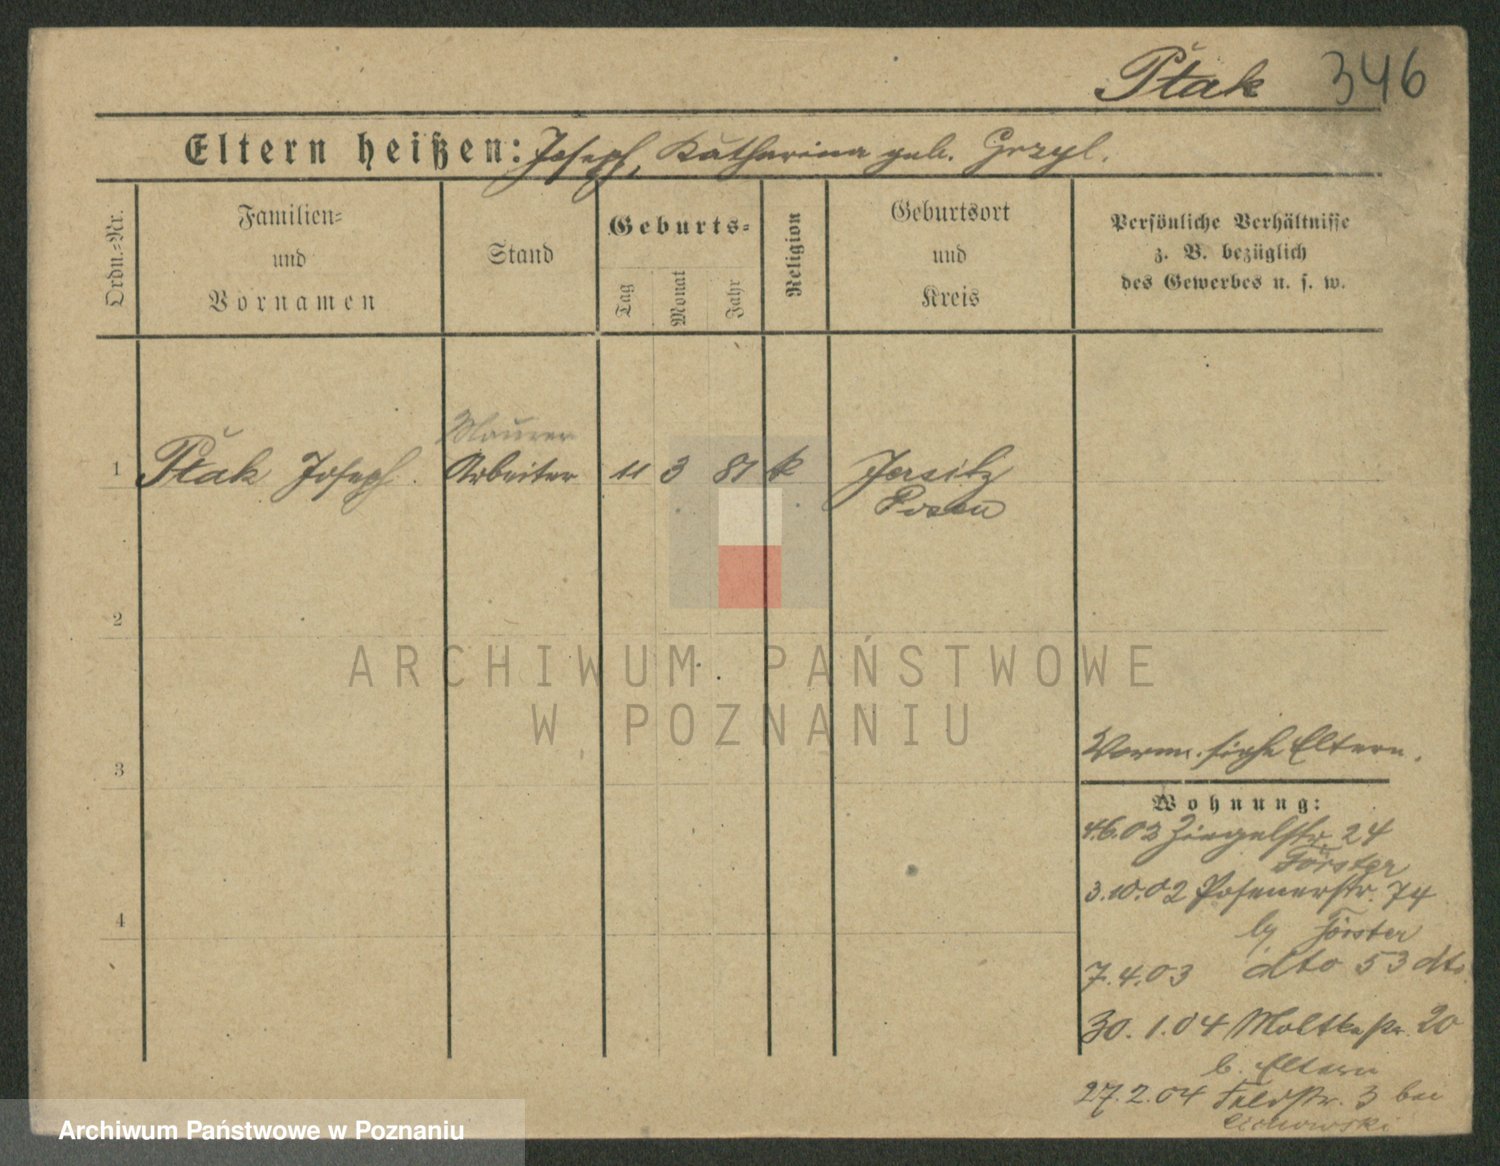 Ptak 346
Eltern heißen: Joseph, Katharina geb. Grzyl.
Ordn.-Nr.
Familien-
und
Vornamen
Stand
Geburts-
Tag
Monat
Jahr
Religion
Geburtsort
und
Kreis
Persönliche Verhältnisse
z. B. bezüglich
des Gewerbes u. s. w.
Maurer
1 Ptak Joseph. Arbeiter 11 3 81 k Jersitz
Posen
2
ARCHIWUM PAŃSTWOWE
W POZNANIU
3
Vorm. siehe Eltern.
Wohnung:
4.6.02 Ziegelstr. 24
Förster
3.10.02 Posenerstr. 74
4
by Förster
7.4.03 dto 53 dto
30.1.04 Moltkestr. 20
b. Eltern
27.2.04 Feldstr. 3 bei
Cichowski
Archiwum Państwowe w Poznaniu